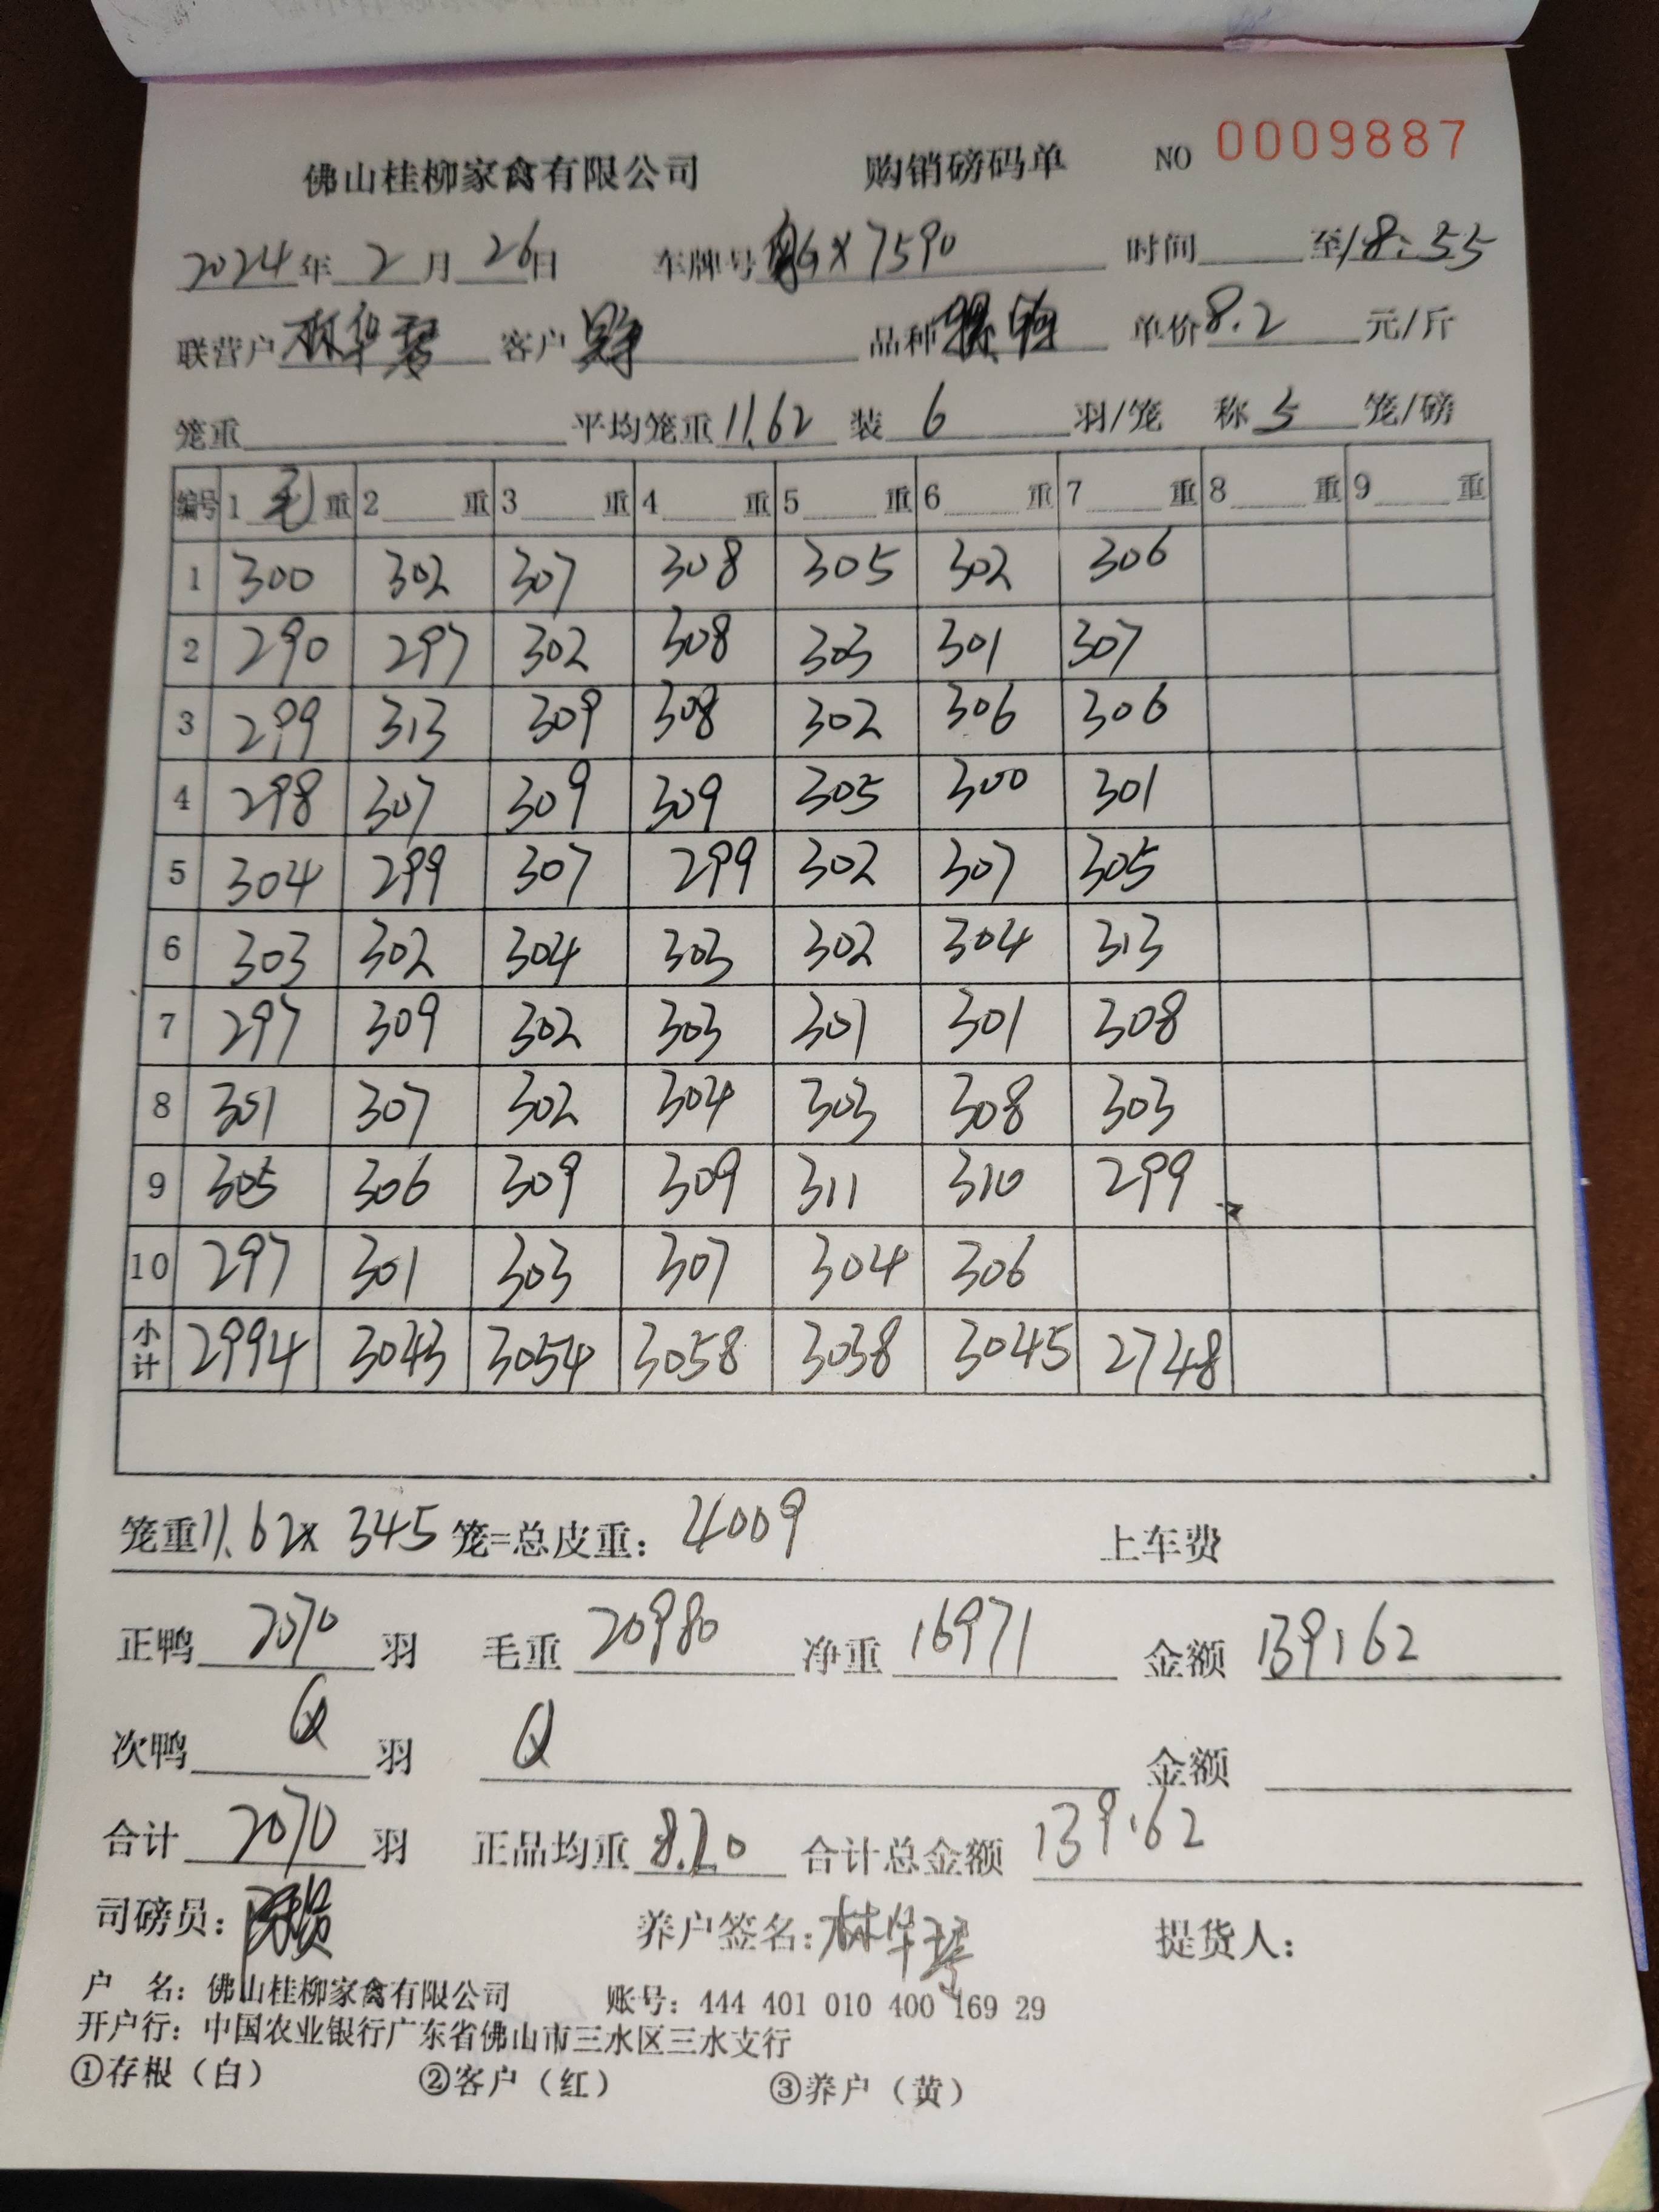 佛山桂柳家禽有限公司 购销磅码单 NO 0009887
2024年2月26日 车牌号 G X 7590 时间 至18:55
联营户 林华 客户 品种 单价8.2 元/斤
笼重 平均笼重11.62 装 6 羽/笼 称 5 笼/磅
编号 1 毛 重 2 重 3 重 4 重 5 重 6 重 7 重 8 重 9 重
1 300 302 307 308 305 302 306
2 290 297 302 308 303 301 307
3 299 313 309 308 302 306 306
4 298 307 309 309 305 300 301
5 304 299 307 299 302 307 305
6 303 302 304 303 302 304 313
7 297 309 302 303 301 301 308
8 301 307 302 304 303 308 303
9 305 306 309 309 311 310 299
10 297 301 303 307 304 306
小计 2994 3043 3054 3058 3038 3045 2748
笼重11.62x 345 笼=总皮重: 4009 上车费
正鸭 2070 羽 毛重 20980 净重 16971 金额 139162
次鸭 0 羽 0 金额
合计 2070 羽 正品均重 8.20 合计总金额 139162
司磅员: 养户签名: 林华 提货人:
户 名: 佛山桂柳家禽有限公司 账号: 444 401 010 400 169 29
开户行: 中国农业银行广东省佛山市三水区三水支行
①存根(白) ②客户(红) ③养户(黄)